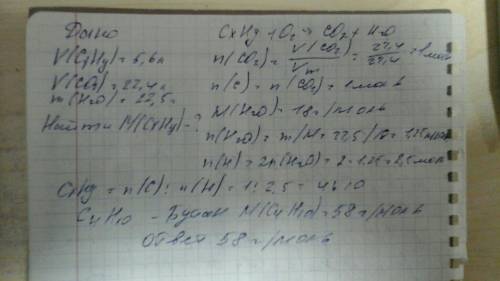 Дано
V(CxHy) = 5,6л
V(CO2) = 22,4л
m(H2O) = 22,5г
Найти M(CxHy) - ?
CxHy + O2 → CO2 + H2O
n(CO2) = V(CO2)/Vm = 22,4/22,4 = 1моль
n(C) = n(CO2) = 1моль
M(H2O) = 18г/моль
n(H2O) = m/M = 22,5/18 = 1,25моль
n(H) = 2n(H2O) = 2·1.25 = 2,5моль
CxHy = n(C) : n(H) = 1 : 2,5 = 4:10
C4H10 - Бутан M(C4H10) = 58г/моль
Ответ 58г/моль